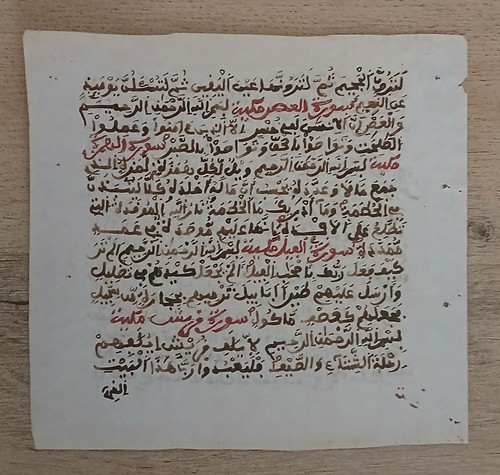 لترون الجحيم ثم لترونها عين اليقين ثم لتسئلن يومئذ
عن النعيم سورة العصر مكية بسم الله الرحمن الرحيم
والعصر إن الانسن لفي خسر الا الذين ءامنوا وعملوا
الصلحت وتواصوا بالحق وتواصوا بالصبر سورة الهمزة
مكية بسم الله الرحمن الرحيم ويل لكل همزة لمزة الذي
جمع مالا وعدده يحسب أن ماله أخلده كلا لينبذن
في الحطمة وما أدريك ما الحطمة نار الله الموقدة التي
تطلع على الافدة إنها عليهم موصدة في عمد
ممددة سورة الفيل مكية بسم الله الرحمن الرحيم الم تر
كيف فعل ربك بأصحب الفيل الم يجعل كيدهم في تضليل
وأرسل عليهم طيرا أبابيل ترميهم بحجارة من سجيل
فجعلهم كعصف ماكول سورة قريش مكية
بسم الله الرحمن الرحيم لإيلف قريش إيلفهم
رحلة الشتاء والصيف فليعبدوا رب هذا البيت
الذي